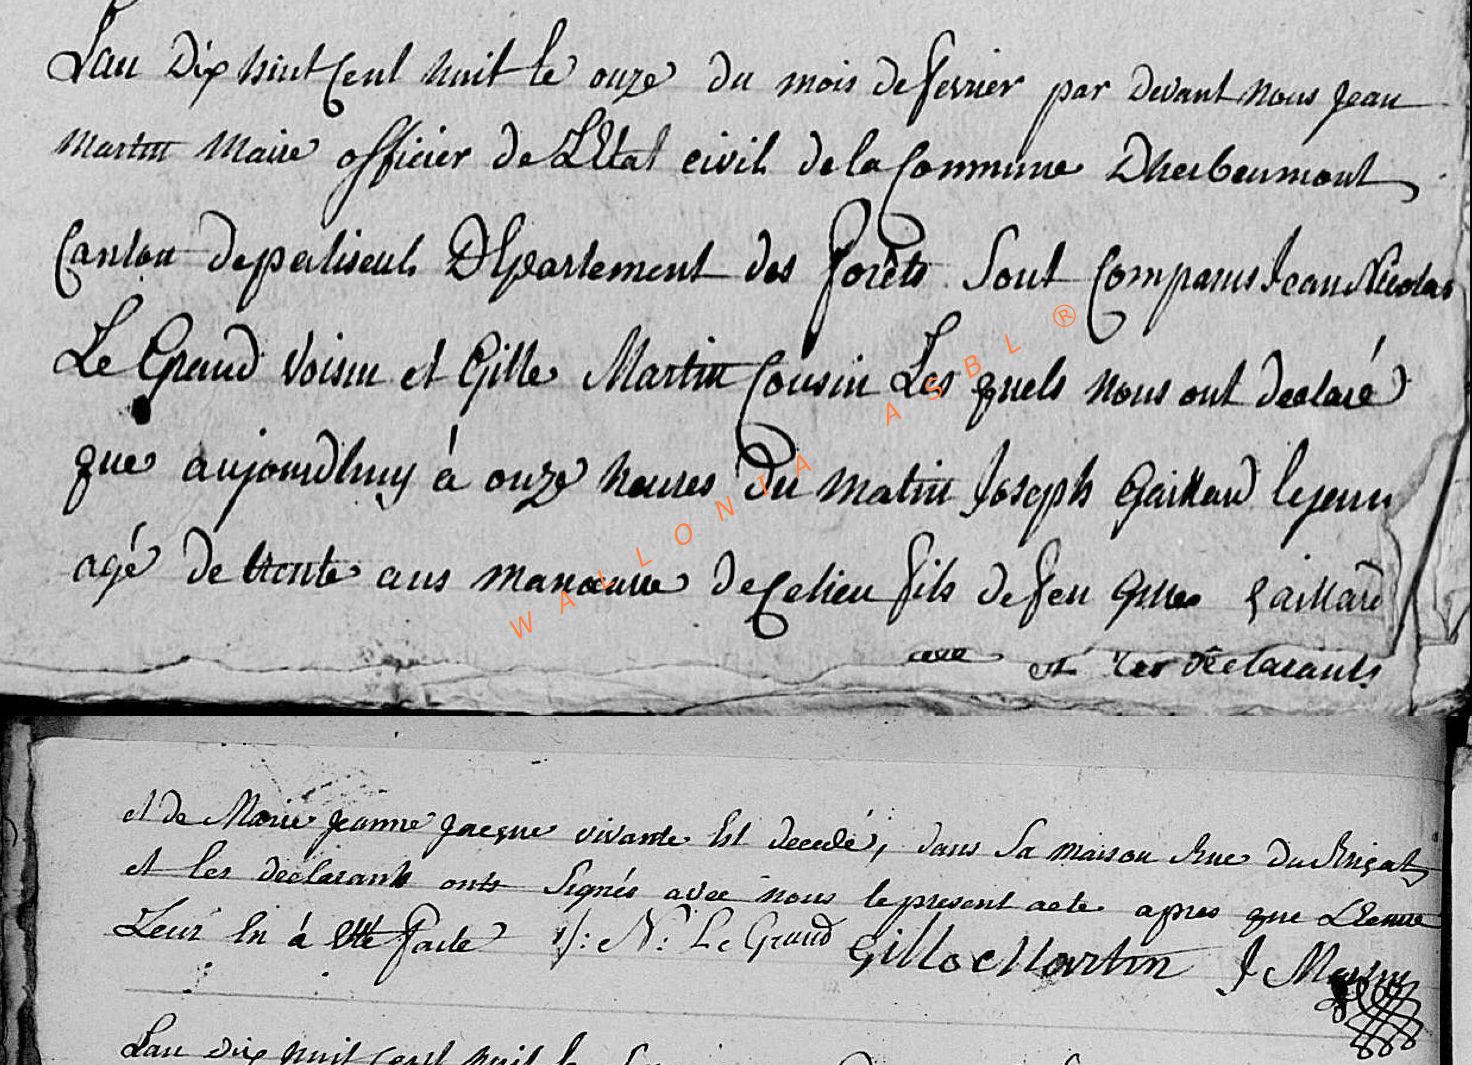 L'an Dix huit Cent huit le onze du mois de fevrier par devant nous jean
Martin Maire officier de L'Etat civil de la Commune D'herbeumont
Canton de paliseul Département des forêts Sont Comparus Jean Nicolas
Le Grand voisin et Gille Martin Cousin Les quels nous ont declaré
que aujourdhuy à onze heures Du matin Joseph Gaillard lejeune
agé de trente ans manoeuvre de Celieu fils de feu Gille Gaillard
et les declarants
et de Marie jeanne jacque vivante Est decedé, dans Sa maison Rue du
et les declarants onts Signés avec nous le present acte apres que L
Leur En á Eté faite J: N: Le Grand Gille Martin J Martin
L'an dix huit Cent huit le
WALLONIA ASBL ®